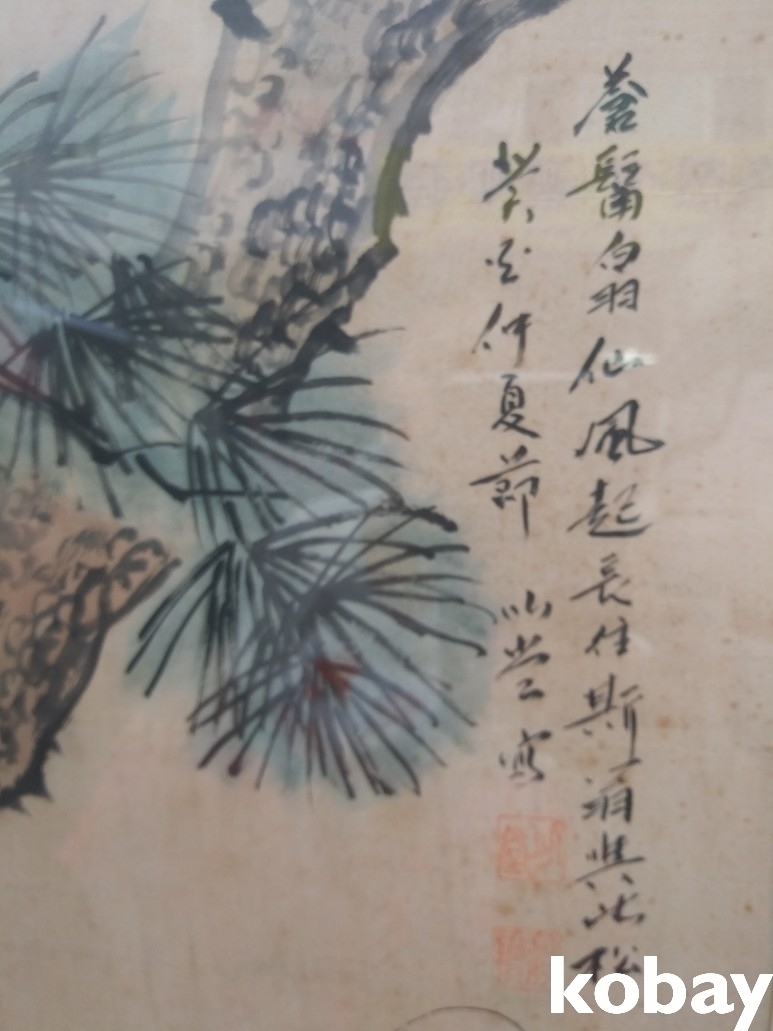 蒼髯白羽仙風起長住斯須與此松
癸
仲夏節
堂寫
kobay